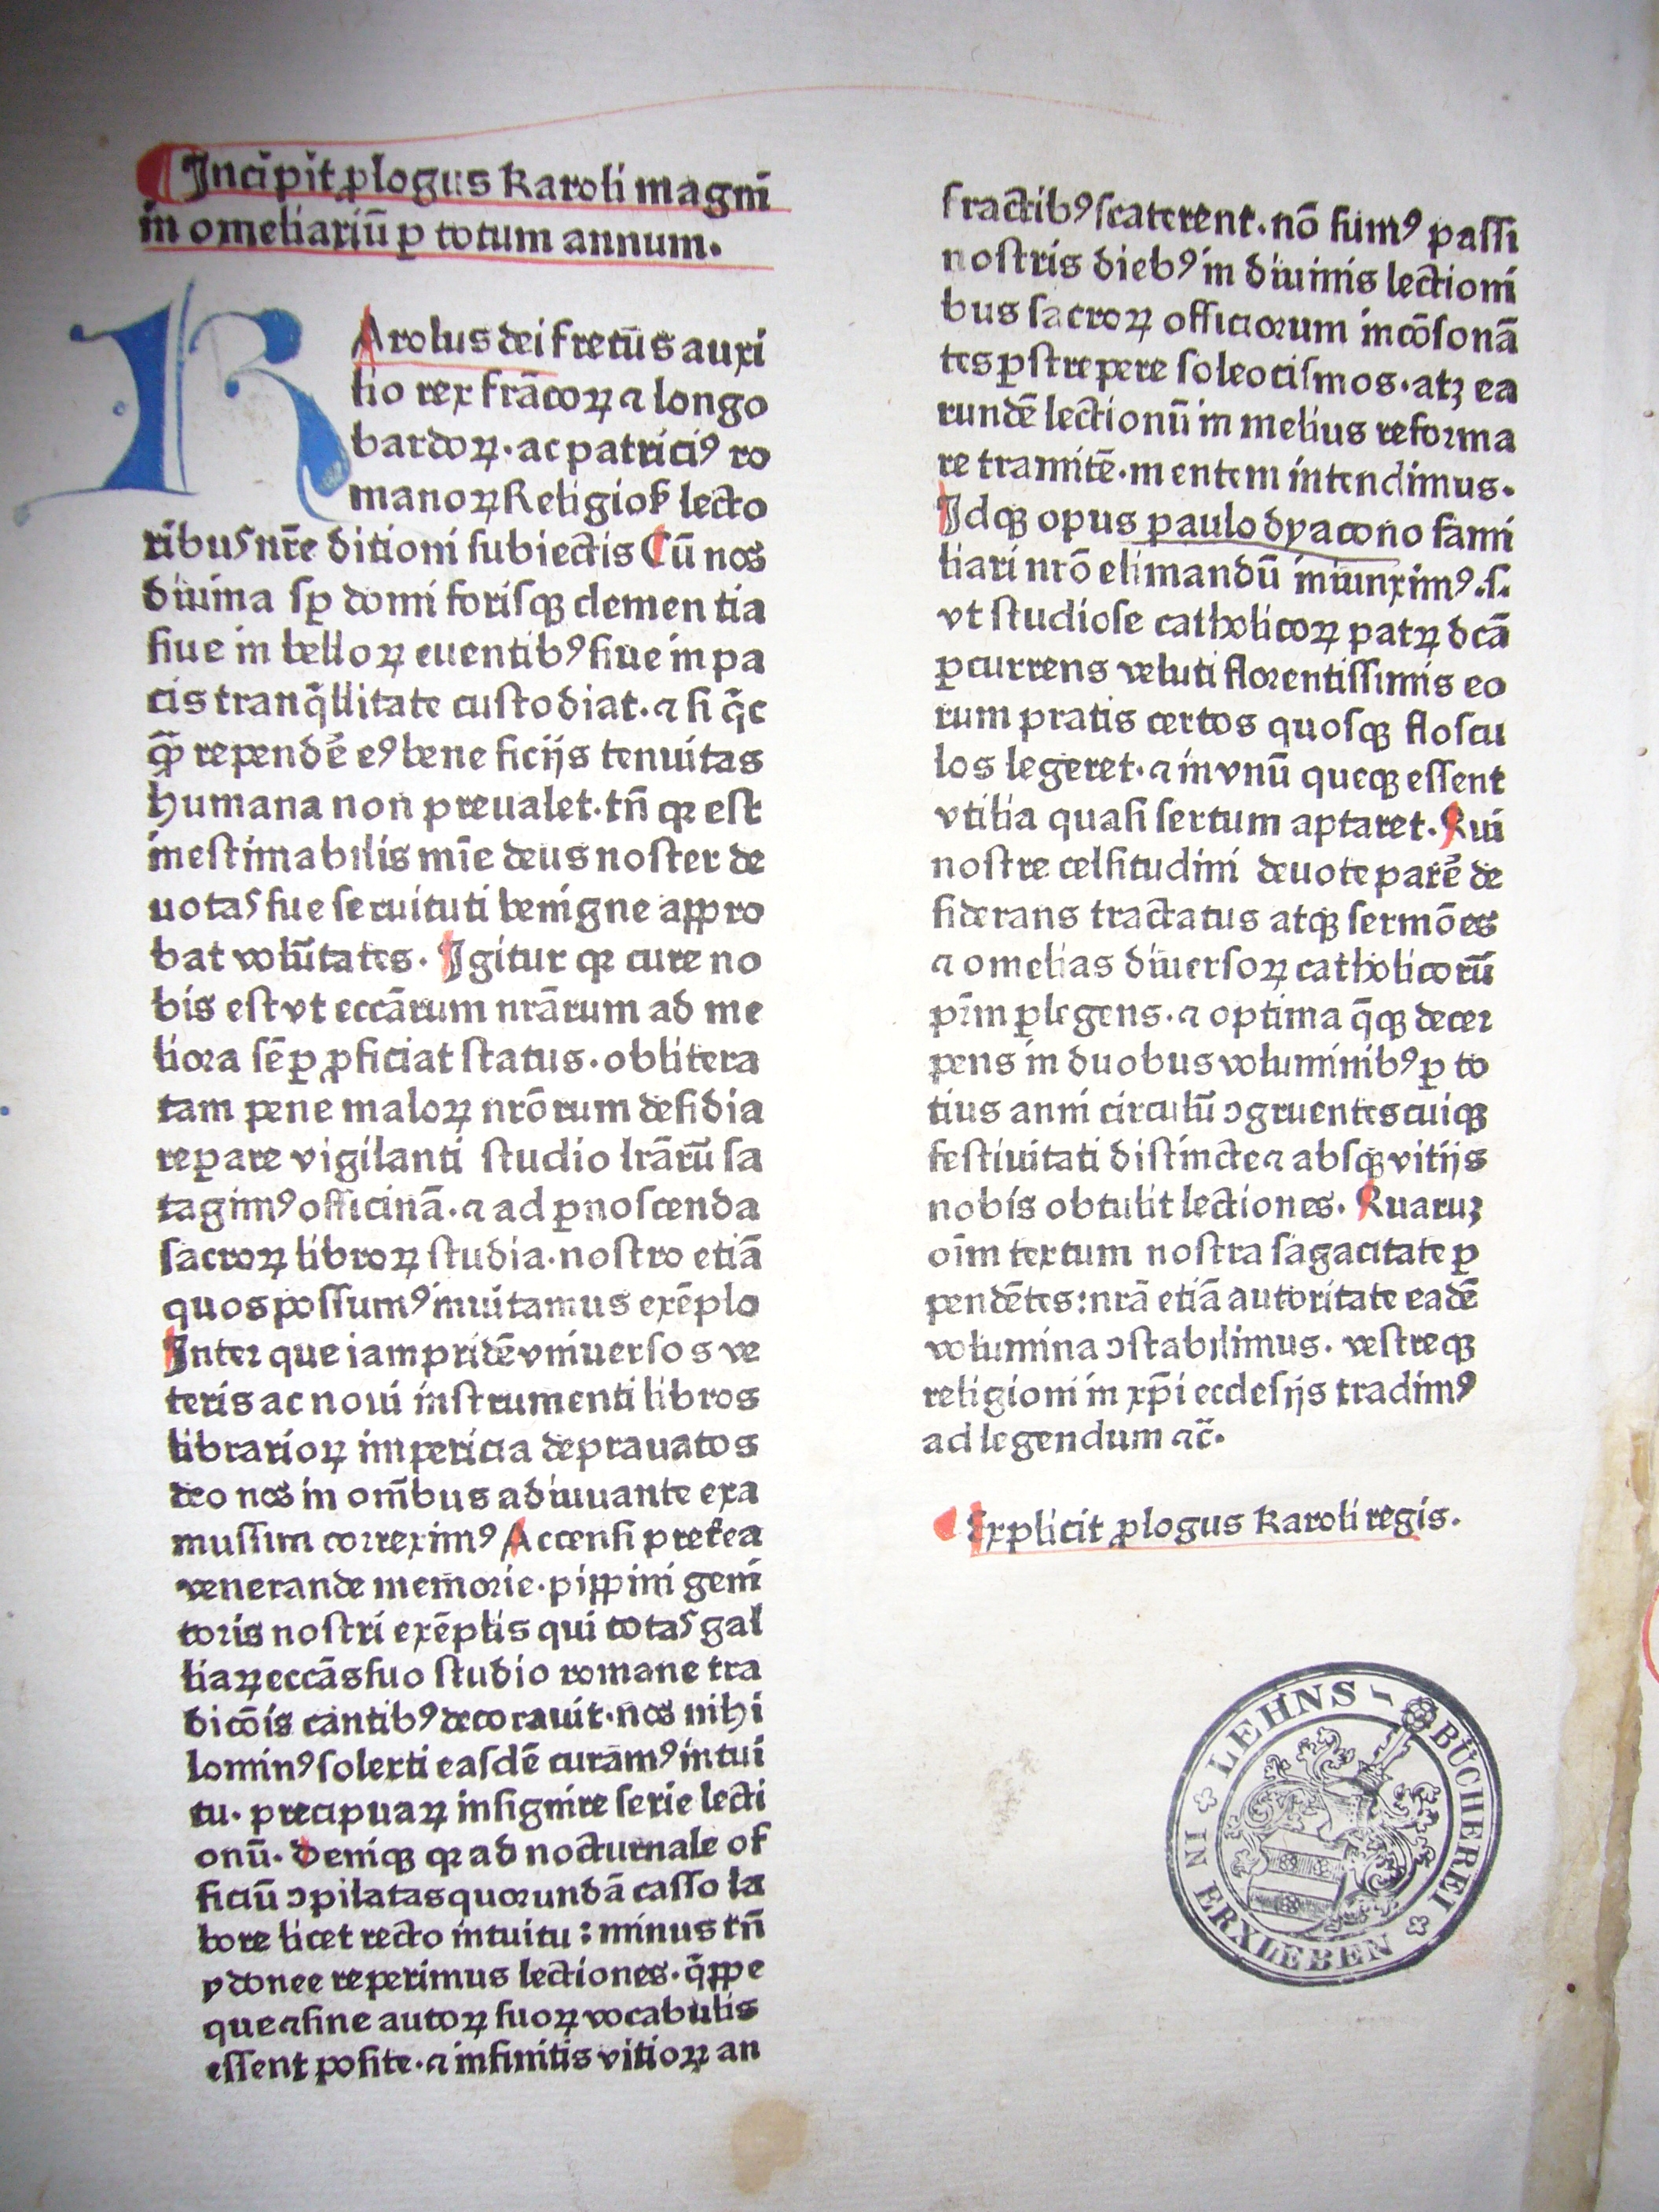 Incipit ꝓlogus Karoli magni
in omeliariū ꝑ totum annum.
KArolus dei fretus auxi
lio rex frācoꝝ ⁊ longo
bardoꝝ. ac patriciꝰ ro
manoꝝ Religioẜ lecto
ribus nr̄e ditioni subiectis Cū nos
diuina sꝑ domi forisqꝫ clementia
siue in belloꝝ euentibꝰ siue in pa
cis tranq̄llitate custodiat. ⁊ si q̄c
qᷓꝫ rependē eꝰ beneficijs tenuitas
humana non preualet. tn̄ qꝛ est
inestimabilis mīe deus noster de
uotas sue seruituti benigne appro
bat volūtates. Igitur qꝛ cure no
bis est vt eccārum nrārum ad me
liora sēꝑ ꝓficiat status. oblitera
tam pene maloꝝ nrōrum desidia
reꝑare vigilanti studio lrārū sa
tagimꝰ officinā. ⁊ ad ꝑnoscenda
sacroꝝ libroꝝ studia. nostro etiā
quos possumꝰ inuitamus exēplo
Inter que iam pridē vniuersos ve
teris ac noui instrumenti libros
librarioꝝ impericia deprauatos
deo nos in om̄bus adiuuante exa
mussim correximꝰ Accensi preterea
venerande memorie. pippini geni
toris nostri exēplis qui totas gal
liaꝝ eccās suo studio romane tra
dicōis cantibꝰ decorauit. nos nihi
lominꝰ solerti easdē curamꝰ intui
tu. precipuaꝝ insignire serie lecti
onū. Deniqꝫ qꝛ ad nocturnale of
ficiū ꝯpilatas quorundā casso la
bore licet recto intuitu: minus tn̄
ydonee reperimus lectiones. q̄ppe
que ⁊ sine autoꝝ suoꝝ vocabulis
essent posite. ⁊ infinitis vitioꝝ an
fractibꝰ scaterent. nō sumꝰ passi
nostris diebꝰ in diuinis lectioni
bus sacroꝝ officiorum incōsonā
tes ꝑstrepere soleocismos. atꝫ ea
rundē lectionū in melius reforma
re tramitē. mentem intendimus.
Idqꝫ opus paulo dyacono fami
liari nrō elimandū iniunximꝰ .s.
vt studiose catholicoꝝ patꝝ dcā
ꝑcurrens veluti florentissimis eo
rum pratis certos quosqꝫ floscu
los legeret. ⁊ in vnū queqꝫ essent
vtilia quasi sertum aptaret. Qui
nostre celsitudini deuote parē de
siderans tractatus atqꝫ sermōes
⁊ omelias diuersoꝝ catholicorū
pr̄m ꝑlegens. ⁊ optima q̄qꝫ decer
pens in duobus voluminibꝰ ꝑ to
tius anni circulū ꝯgruentes cuiqꝫ
festiuitati distincte ⁊ absqꝫ vitijs
nobis obtulit lectiones. Quaruꝫ
oīm textum nostra sagacitate ꝑ
pendētes: nrā etiā autoritate eadē
volumina ꝯstabilimus. vestreqꝫ
religioni in xp̄i ecclesijs tradimꝰ
ad legendum ⁊c̄.
Explicit ꝓlogus Karoli regis.
LEHNS-BÜCHEREI
IN ERXLEBEN